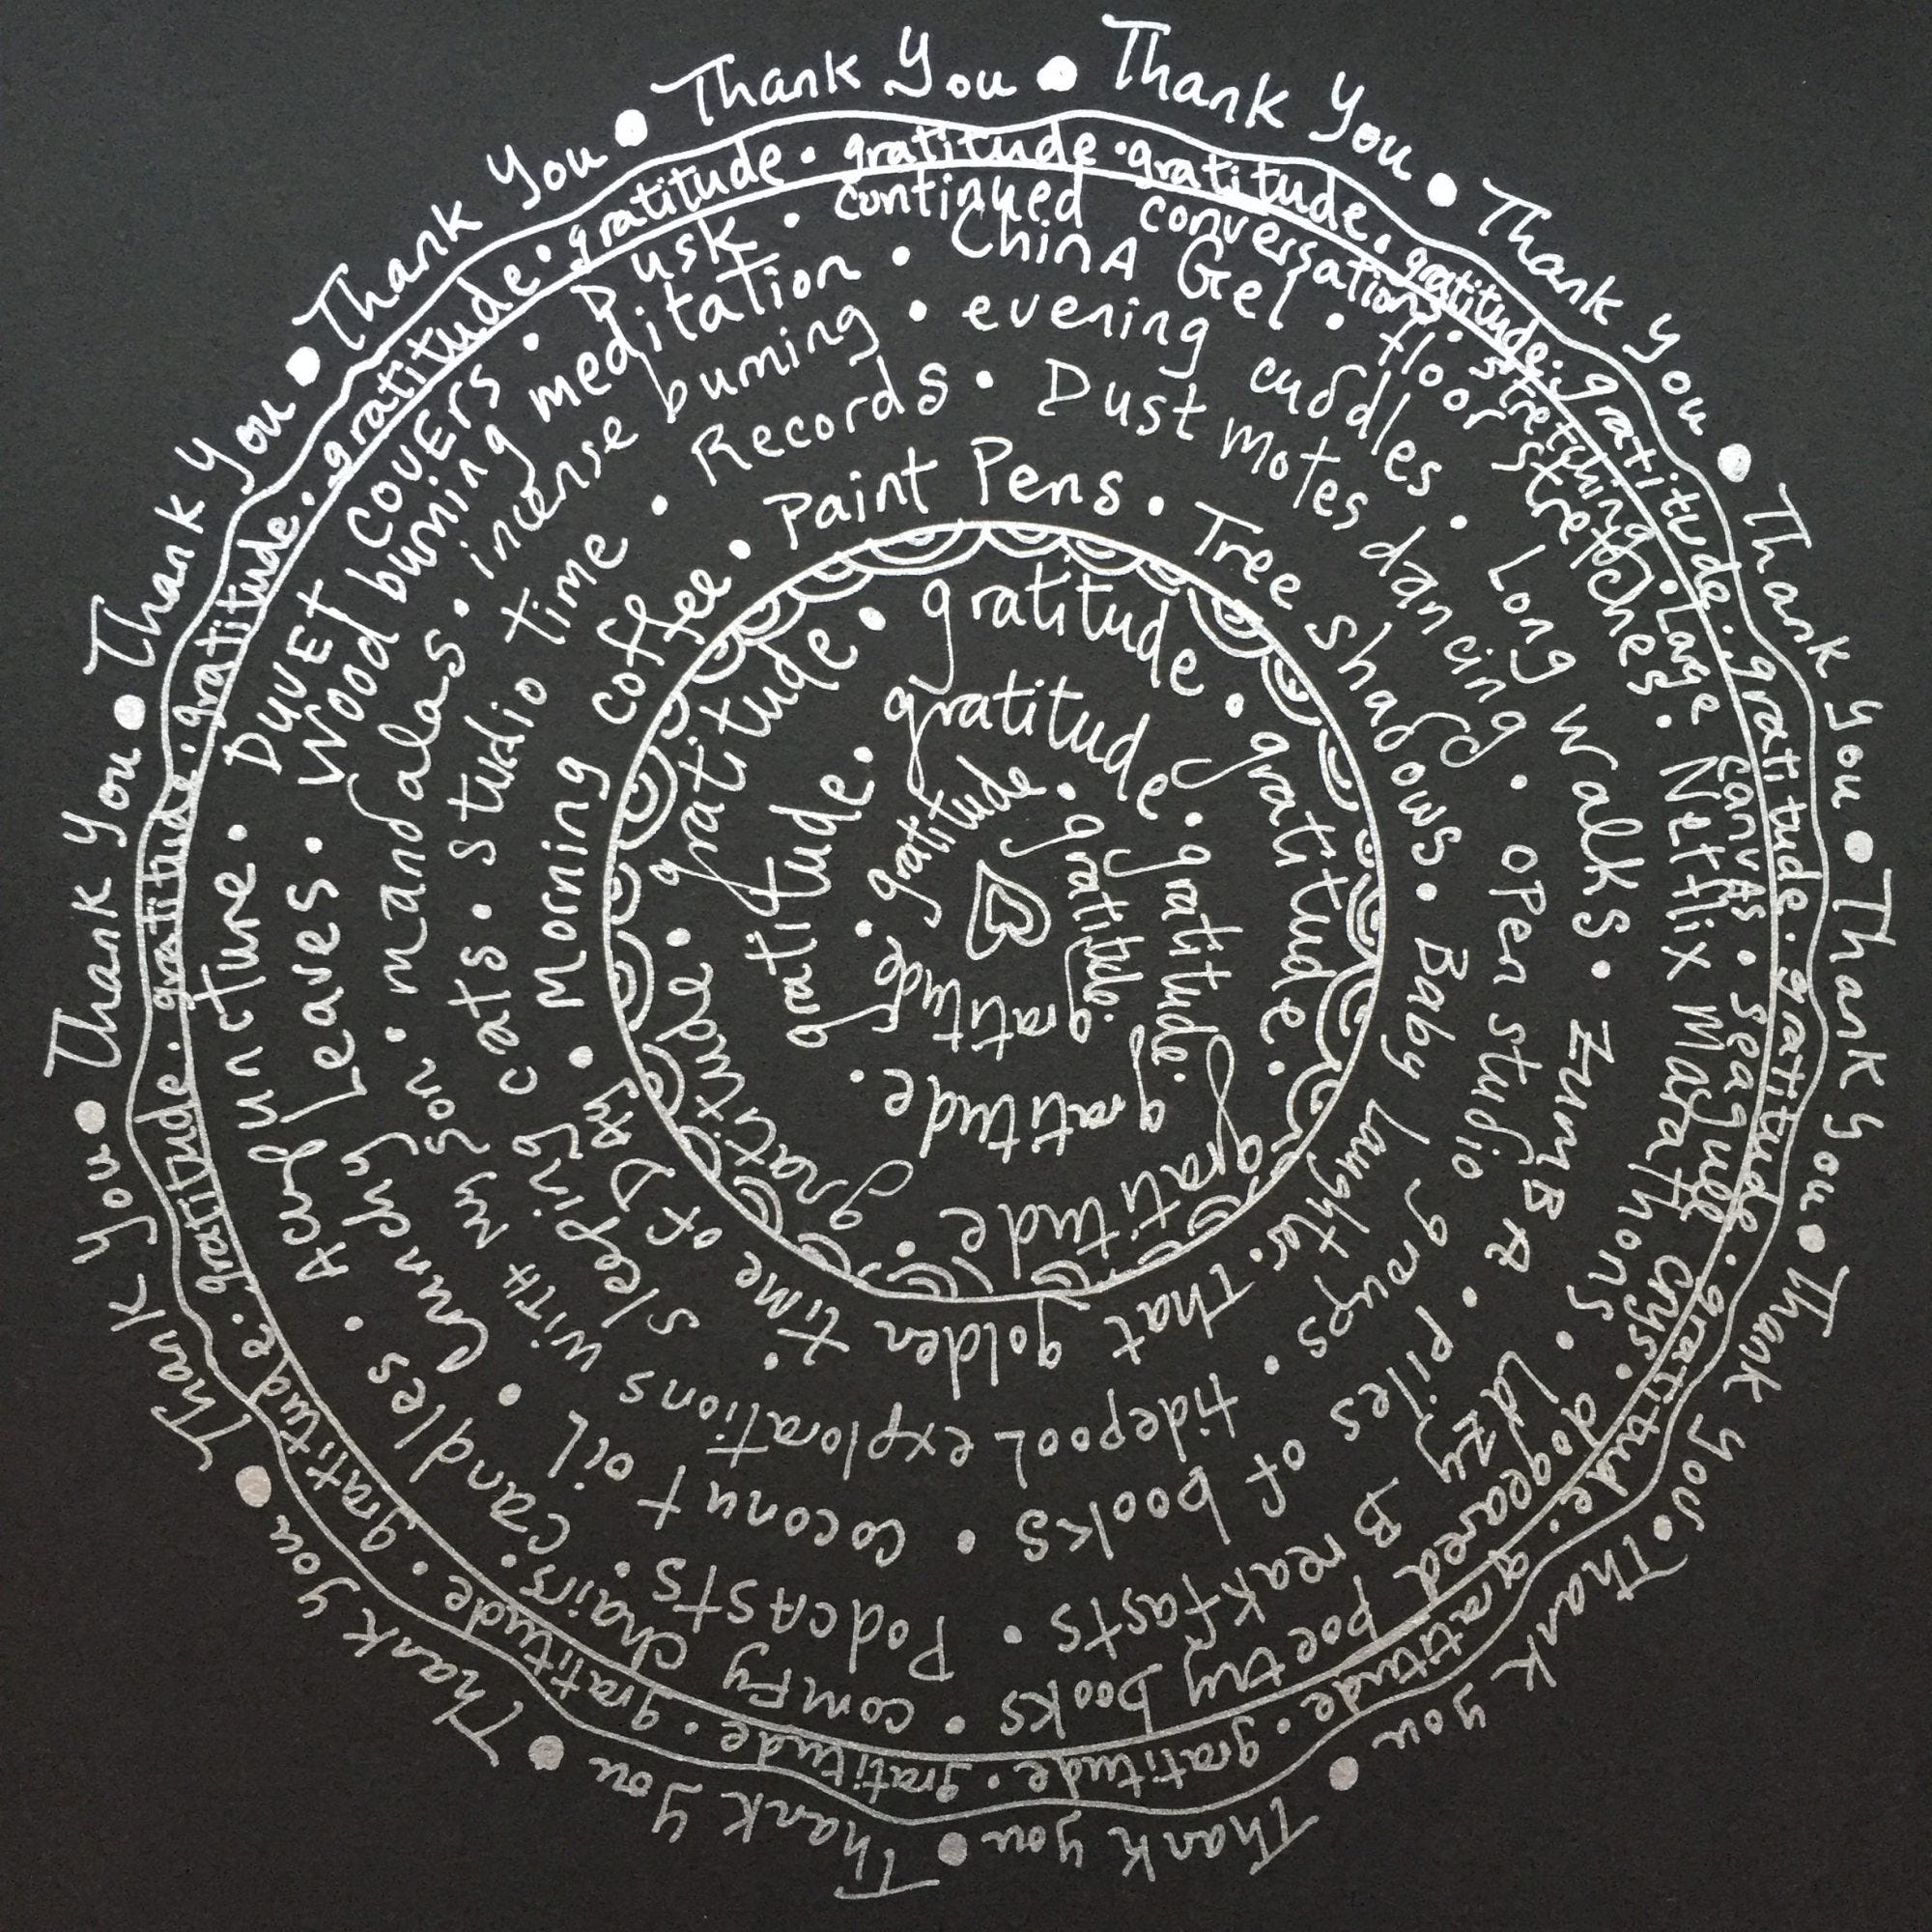 Thank You • Thank You • Thank You • Thank You • Thank You • Thank You • Thank You • Thank You • Thank You • Thank You • Thank You • Thank You • Thank You • Thank You •
gratitude • gratitude • gratitude • gratitude • gratitude • gratitude • gratitude • gratitude • gratitude • gratitude • gratitude • gratitude • gratitude • gratitude • gratitude • gratitude • gratitude •
Morning coffee • Paint Pens • Tree shadows • Baby Laughter • That golden time of Day •
sleeping cats • studio time • Records • Dust motes dancing • open studio groups •
tidepool explorations with my son • mandalas • incense burning • evening cuddles • Long walks • ZumBA • Piles of books •
coconut oil • Crunchy Leaves • Wood burning meditation • ChinA Gel • floor stretches • Netflix Marathons • Lazy Breakfasts •
Podcasts • candles • Acupuncture • DUVET COVERS • Dusk • continued conversations • stretching • Large canvas • seagull crys • dogeared poetry books • comfy chairs •
gratitude • gratitude • gratitude • gratitude • gratitude •
gratitude • gratitude • gratitude • gratitude •
gratitude • gratitude • gratitude • gratitude •